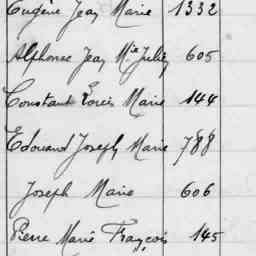 Eugène Jean Marie 1332
Alphonse Jean Mie Julien 605
Constant Louis Marie 144
Edouard Joseph Marie 788
Joseph Marie 606
Pierre Marie François 145